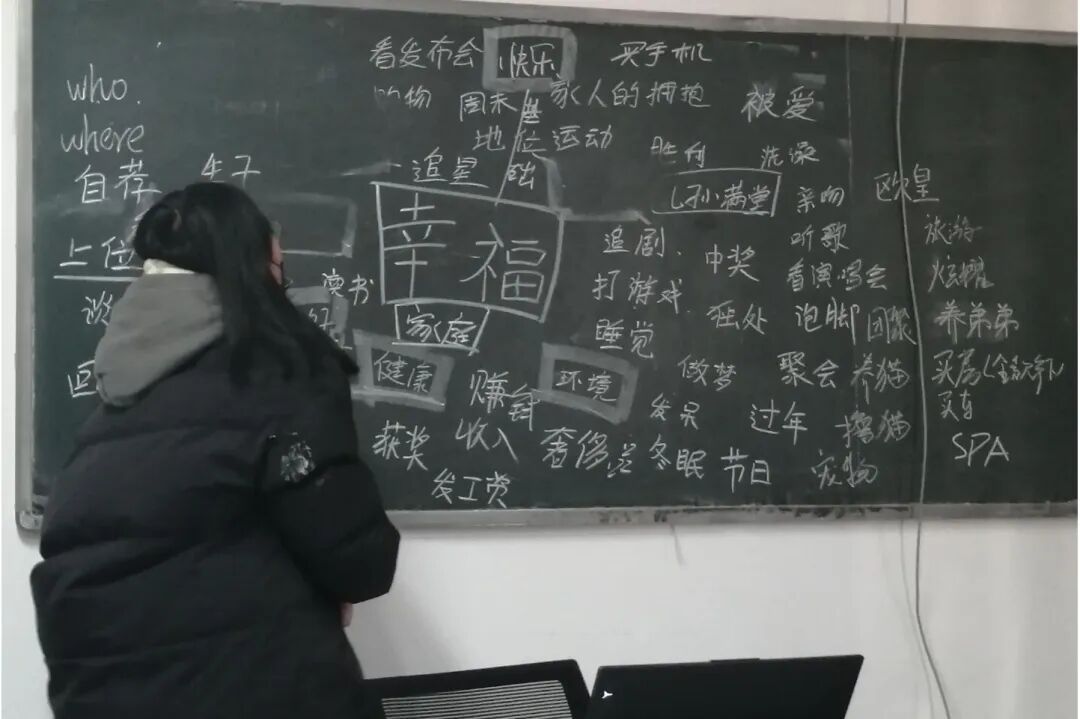 who.
where
自荐
上位
看发布会
快乐
买手机
购物
周末
家人的拥抱
被爱
基础
地位
运动
追星
胜利
洗澡
幸福
满堂
亲吻
欧皇
追剧.
中奖
听歌
旅游
打游戏
看演唱会
炫耀
读书
独处
泡脚
团聚
养弟弟
家庭
睡觉
健康
环境
做梦
聚会
养猫
买房(全款)
买车
赚钱
发呆
过年
撸猫
获奖
收入
奢侈品
冬眠
节日
宠物
SPA
发工资